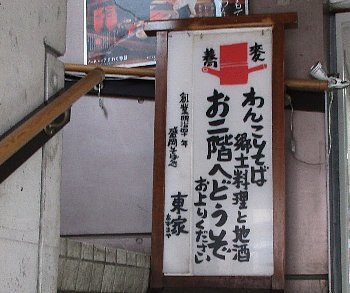 蕎麦
わんこそば
郷土料理と地酒
お二階へどうぞ
お上りください
創業明治四十年
盛岡そば処
東家